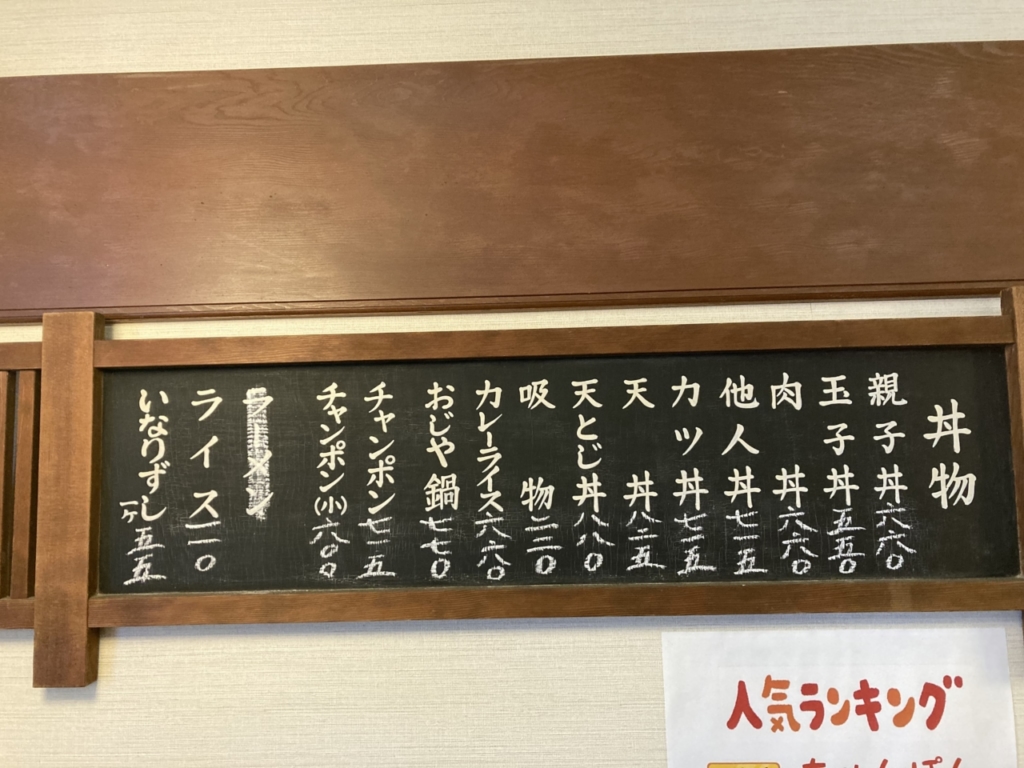 丼物
親子丼 六六〇
玉子丼 五五〇
肉丼 六六〇
他人丼 七一五
カツ丼 七一五
天丼 八二五
天とじ丼 八八〇
吸物 二二〇
カレーライス 六六〇
おじや鍋 七七〇
チャンポン 七一五
チャンポン(小) 六〇〇
ラーメン
ライス 二一〇
いなりずし 一ヶ 五五
人気ランキング